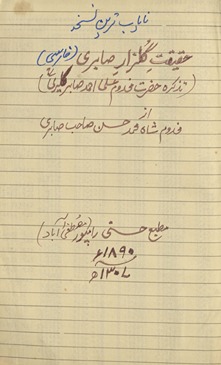 نایاب ترین نسخہ
حقیقت گلزار صابری (فارسی)
(تذکرہ حضرت مخدوم علی احمد صابر کلیریؒ)
از
مخدوم شاہ محمد حسن صاحب صابری
مطبع حسنی رامپور (مصطفیٰ آباد)
۱۸۹۰ء
۱۳۰۴ھ